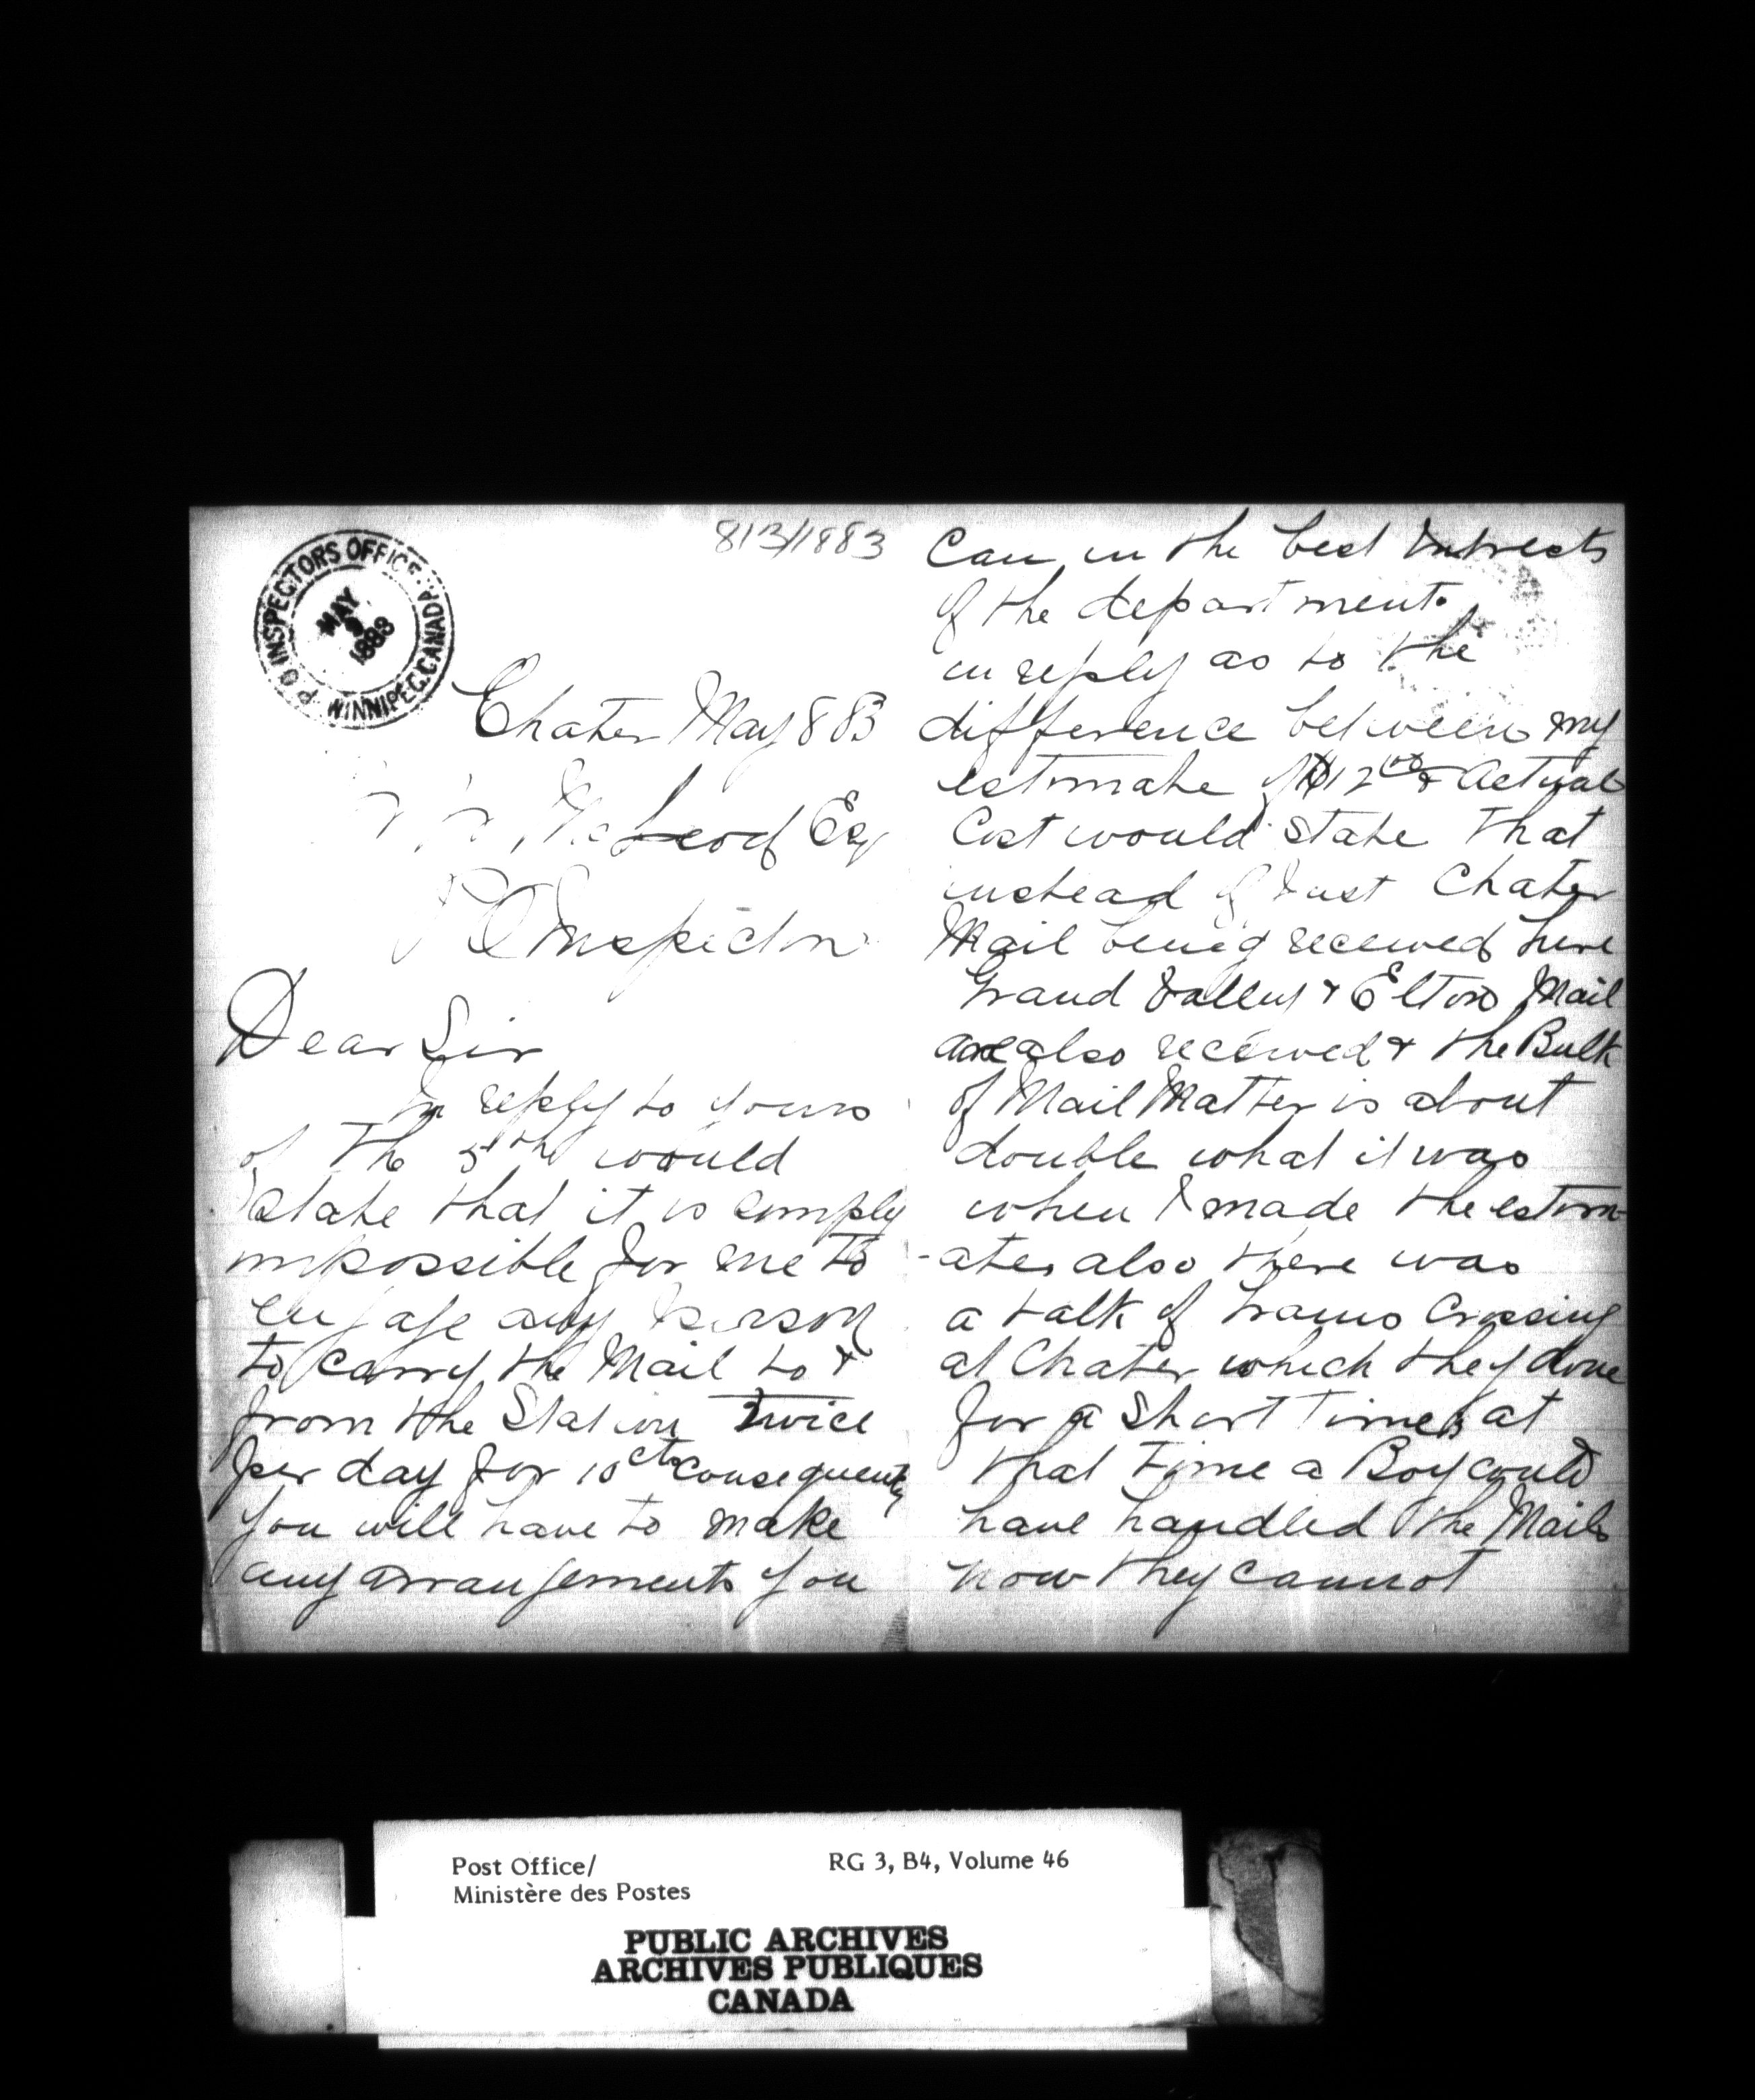 813/1883
P.O INSPECTORS OFFICE
WINNIPEG. CANADA
MAY
9
1883
Chater May 8 83
McLeod Esq
P O Inspector
Dear Sir
In reply to yours
of the 5th would
state that it is simply
impossible for me to
engage any person
to carry the Mail to &
from the Station twice
per day for 10cts consequently
you will have to make
any arrangements you
Can in the best Intrests
of the department.
in reply as to the
difference between my
estimate of 12 & Actual
Cost would state that
instead of Just Chater
Mail being received here
Grand Valley & Elton Mail
are also received & the Bulk
of Mail Matter is about
double what it was
when I made the estim-
-ates also there was
a talk of trains Crossing
at Chater which they done
for a Short Time & at
that time a Boy could
have handled the Mails
now they cannot
Post Office/
Ministère des Postes
RG 3, B4, Volume 46
PUBLIC ARCHIVES
ARCHIVES PUBLIQUES
CANADA